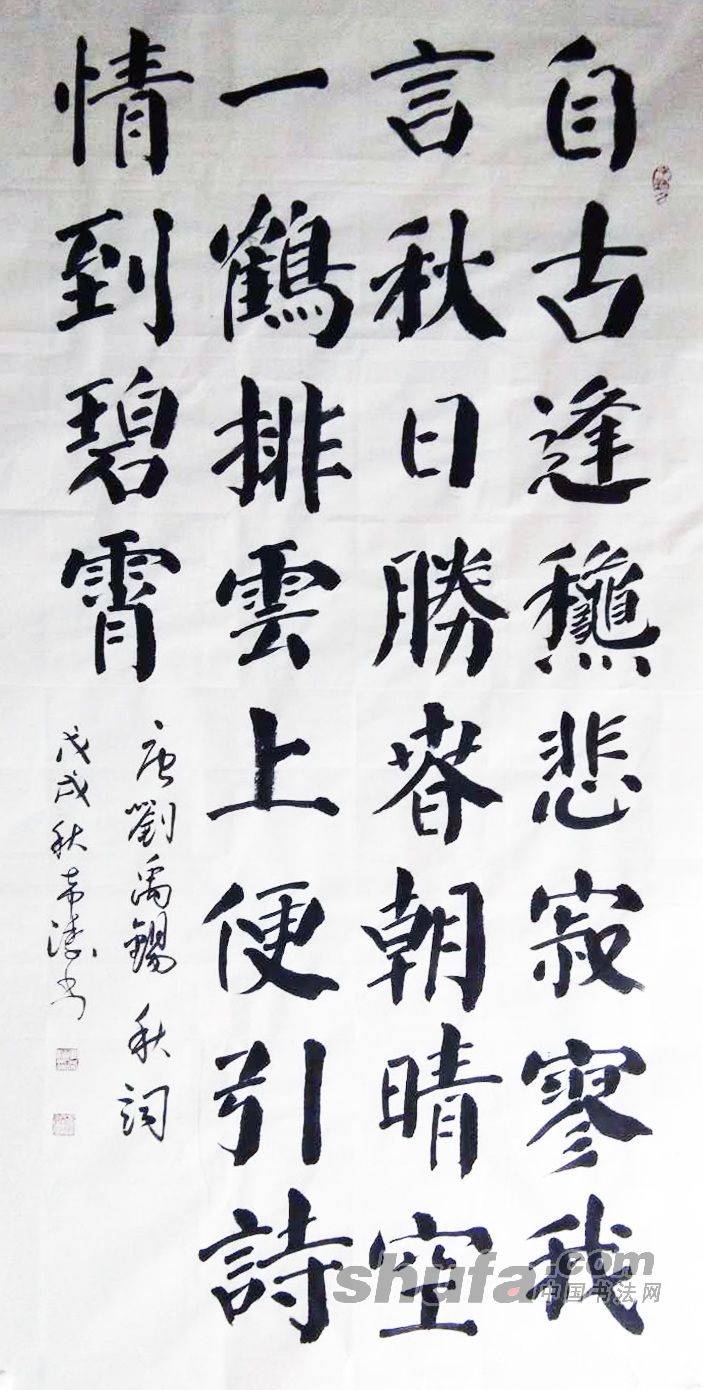 自古逢龝悲寂寥我
言秋日勝春朝晴空
一鶴排雲上便引詩
情到碧霄
唐劉禹錫 秋詞
戊戌秋
shufa.com
中国书法网